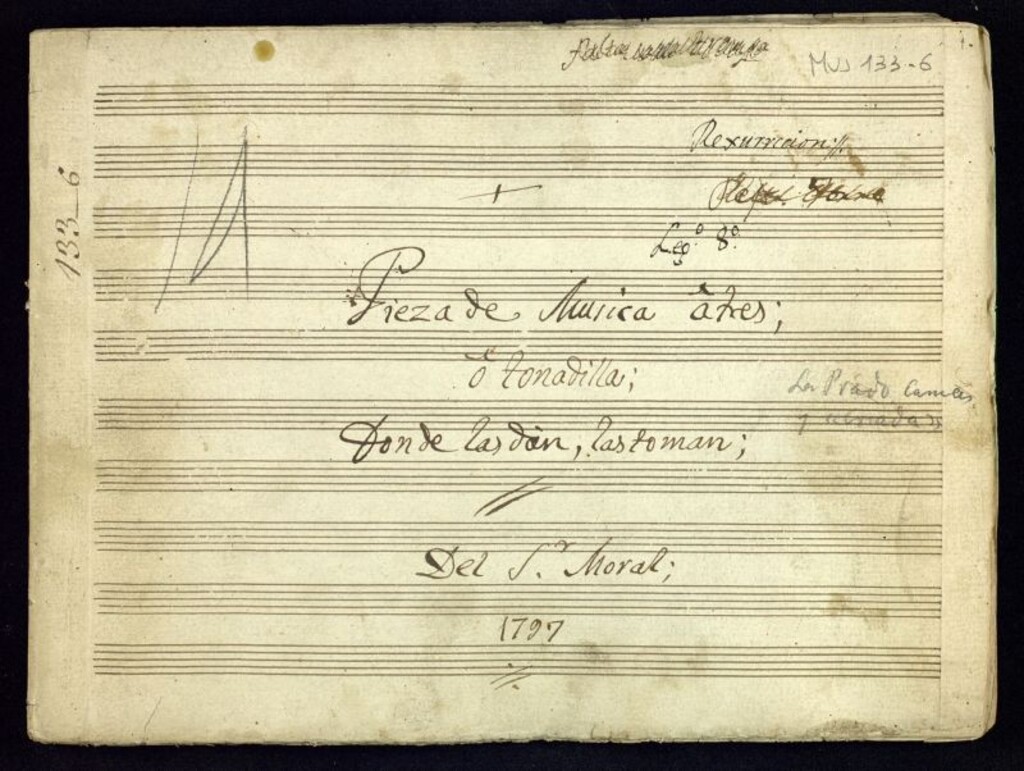 Mus 133-6
133-6
Rexurrecion;
Leg.º 8º
Pieza de Musica â tres;
ô tonadilla;
Donde las dàn, las toman;
Del S.r Moral;
1797
La Prado
y